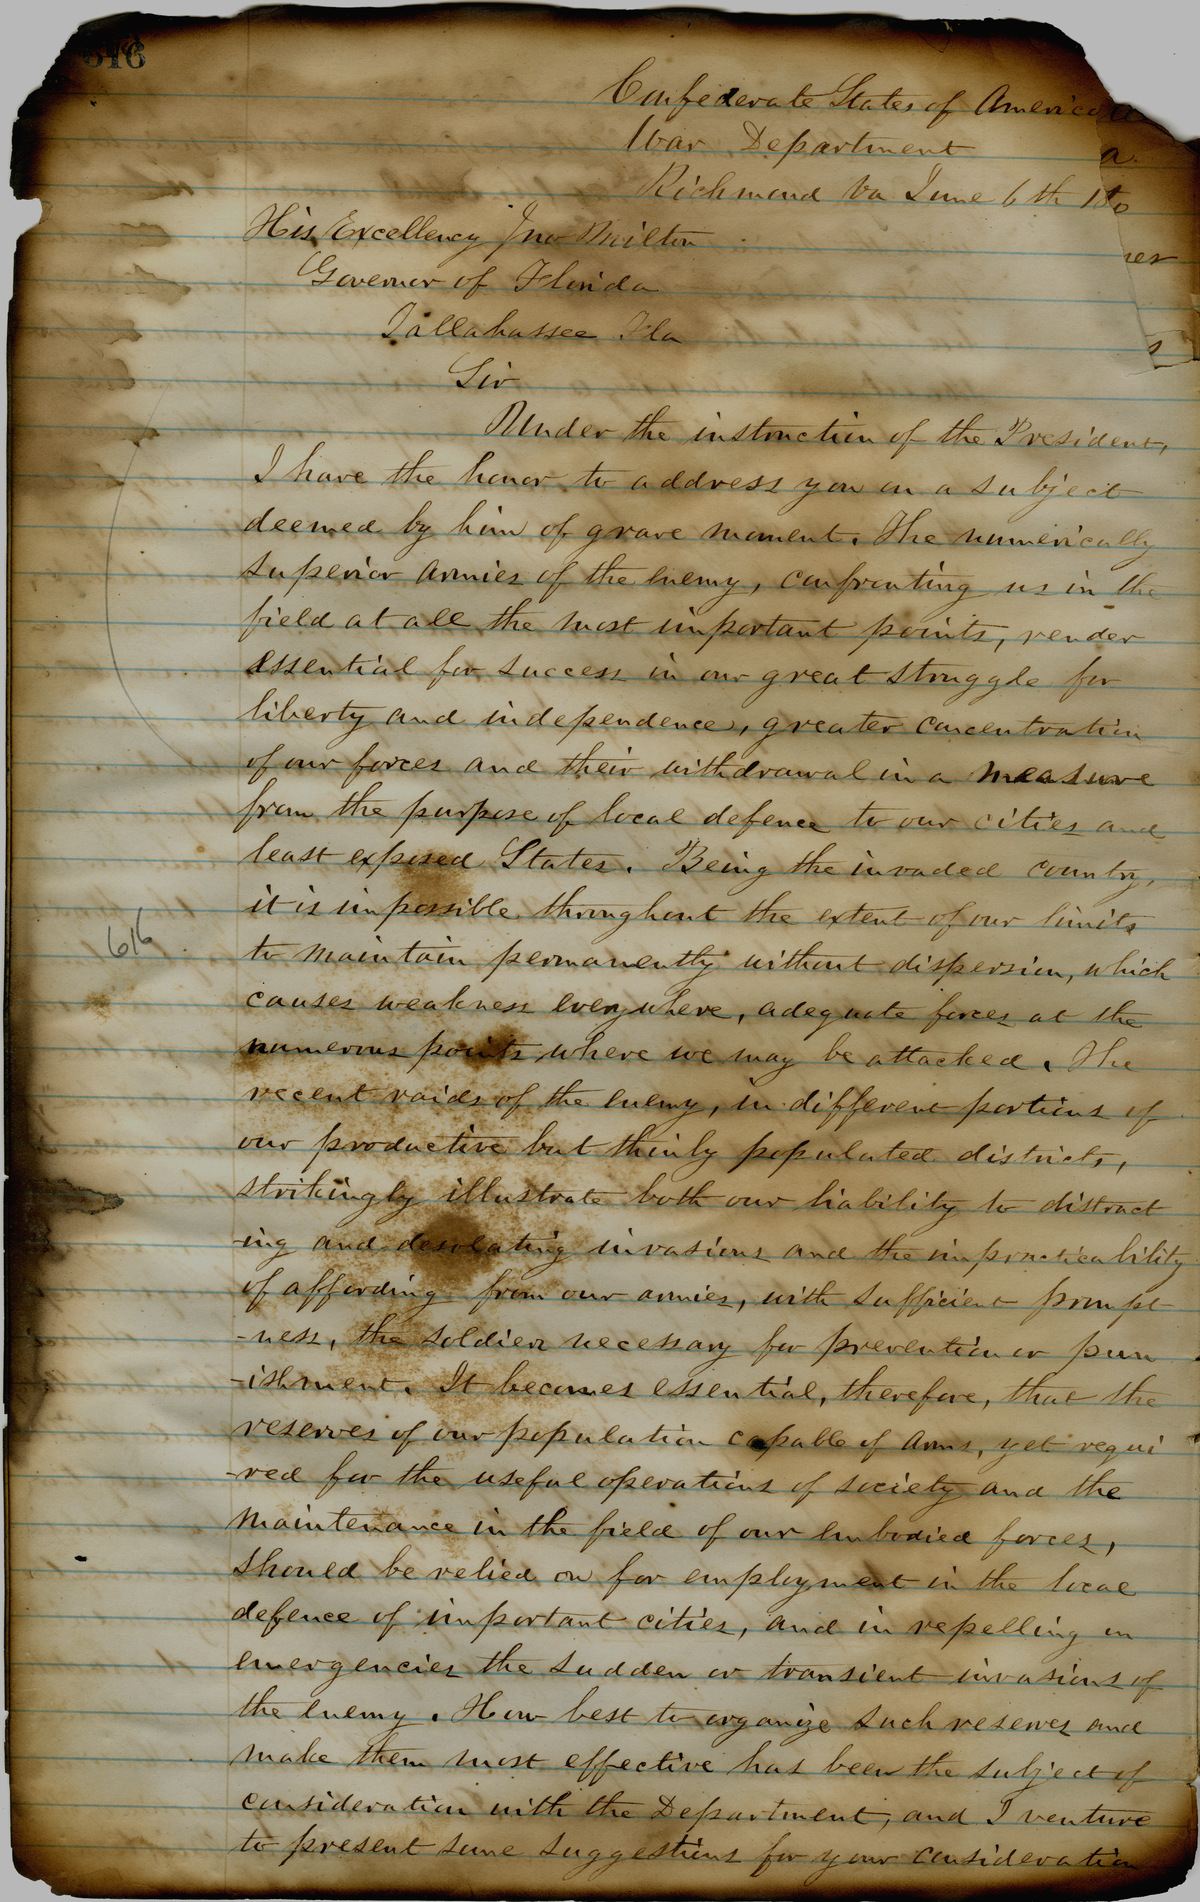 616
Confederate States of America
War Department
a.
Richmond Va June 6th 18
His Excellency Jno Milton
er
Governor of Florida
Tallahassee Fla
s
Sir
Under the instruction of the President,
I have the honor to address you on a subject
deemed by him of grave moment. The numerically
superior armies of the enemy, confronting us in the
field at all the most important points, render
essential for success in our great struggle for
liberty and independence, greater concentration
of our forces and their withdrawal in a measure
from the purpose of local defence to our cities and
least exposed States. Being the invaded country,
it is impossible throughout the extent of our limits
616
to maintain permanently without dispersion, which
causes weakness everywhere, adequate forces at the
numerous points where we may be attacked. The
recent raids of the enemy, in different portions of
our productive but thinly populated districts,
strikingly illustrate both our liability to distract
-ing and desolating invasions and the impracticability
of affording from our armies, with sufficient prompt
-ness, the soldiers necessary for prevention or pun
-ishment. It becomes essential, therefore, that the
reserves of our population capable of arms, yet requi
-red for the useful operations of society and the
maintenance in the field of our embodied forces,
should be relied on for employment in the local
defence of important cities, and in repelling in
emergencies the sudden or transient invasions of
the enemy. How best to organize such reserves and
make them most effective has been the subject of
consideration with the Department, and I venture
to present some suggestions for your consideration